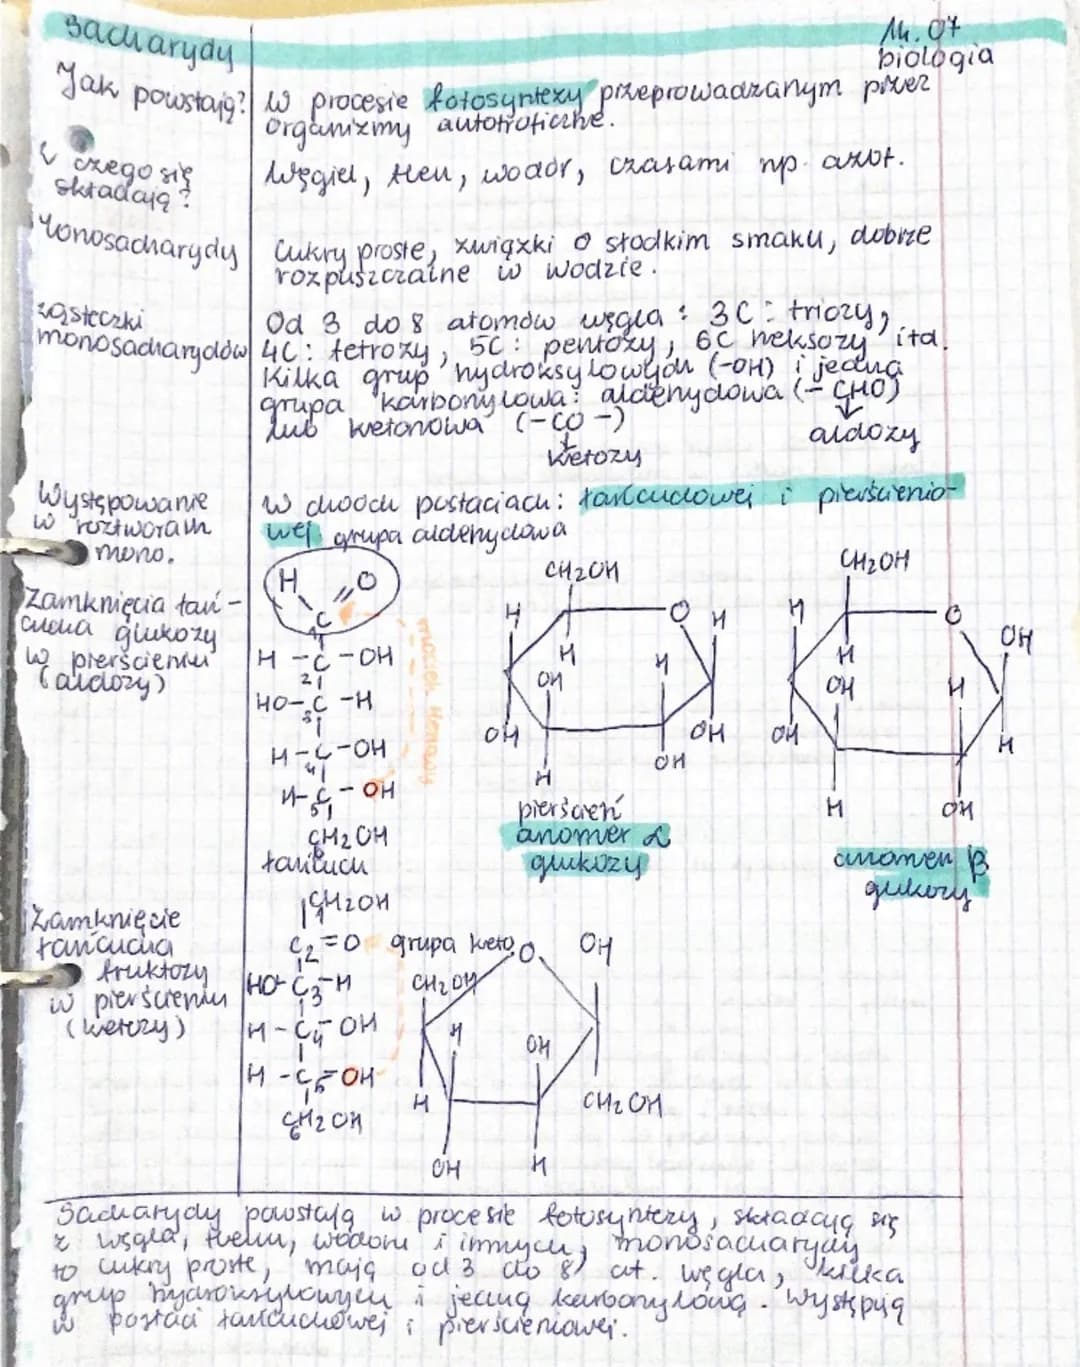 Sacharydy
14.07
biologia
Jak powstają?
W procesie fotosyntezy przeprowadzanym przez
organizmy autotroficzne.
z czego się
składają?
Węgiel, tlen, wodór, czasami np. azot.
Monosacharydy
Cukry proste, związki o słodkim smaku, dobrze
rozpuszczalne w wodzie.
cząsteczki
monosacharydów
Od 3 do 8 atomów węgla: 3C: triozy,
4C: tetrozy, 5C: pentozy, 6C heksozy itd.
Kilka grup hydroksylowych (-OH) i jedna
grupa karbonylowa: aldehydowa (-CHO)
lub ketonowa (-CO-)
aldozy
ketozy
Występowanie
w roztworach
mono.
W dwóch postaciach: łańcuchowej i pierścienio-
wej
grupa aldehydowa
Zamknięcia łań-
cucha glukozy
w pierścieniu
(aldozy)
H O
C
1
H-C-OH
2
HO-C-H
3
H-C-OH
4
H-C-OH
5
CH2OH
6
łańcuch
mostek tlenowy
CH2OH
H O H
H
OH H
OH OH
H OH
pierścień
anomer α
glukozy
CH2OH
H O OH
H
OH H
OH H
H OH
anomer β
glukozy
Zamknięcie
łańcucha
fruktozy
w pierścieniu
(ketozy)
CH2OH
1
C2=O grupa keto
HO-C3-H
H-C4-OH
H-C5-OH
CH2OH
6
O OH
CH2OH
H OH
H CH2OH
OH H
Sacharydy powstają w procesie fotosyntezy, składają się
z węgla, tlenu, wodoru i innych, monosacharydy
to cukry proste, mają od 3 do 8 at. węgla, kilka
grup hydroksylowych i jedną karbonylową. Występują
w postaci łańcuchowej i pierścieniowej.